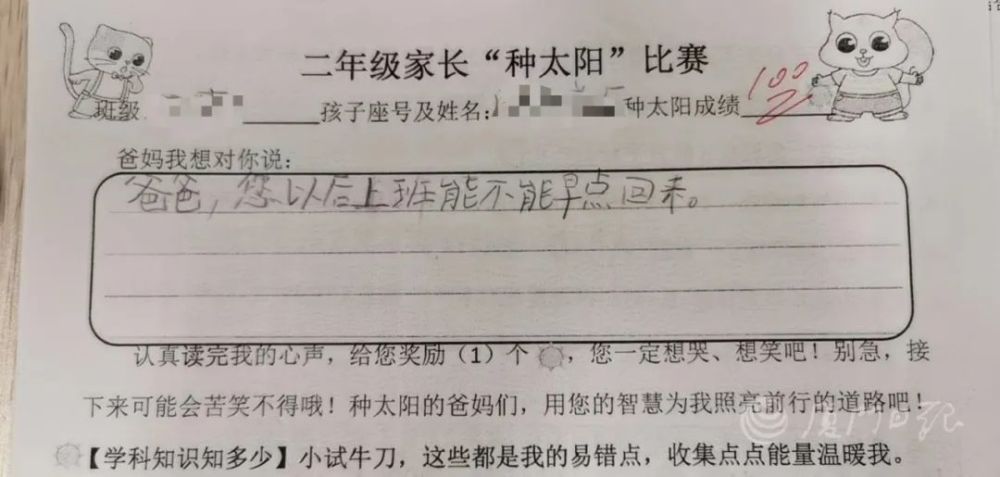 二年级家长“种太阳”比赛
班级 孩子座号及姓名: 种太阳成绩 100
爸妈我想对你说:
爸爸,您以后上班能不能早点回来。
认真读完我的心声,给您奖励(1)个 ,您一定想哭、想笑吧!别急,接
下来可能会苦笑不得哦!种太阳的爸妈们,用您的智慧为我照亮前行的道路吧!
【学科知识知多少】小试牛刀,这些都是我的易错点,收集点点能量温暖我。
厦门日报